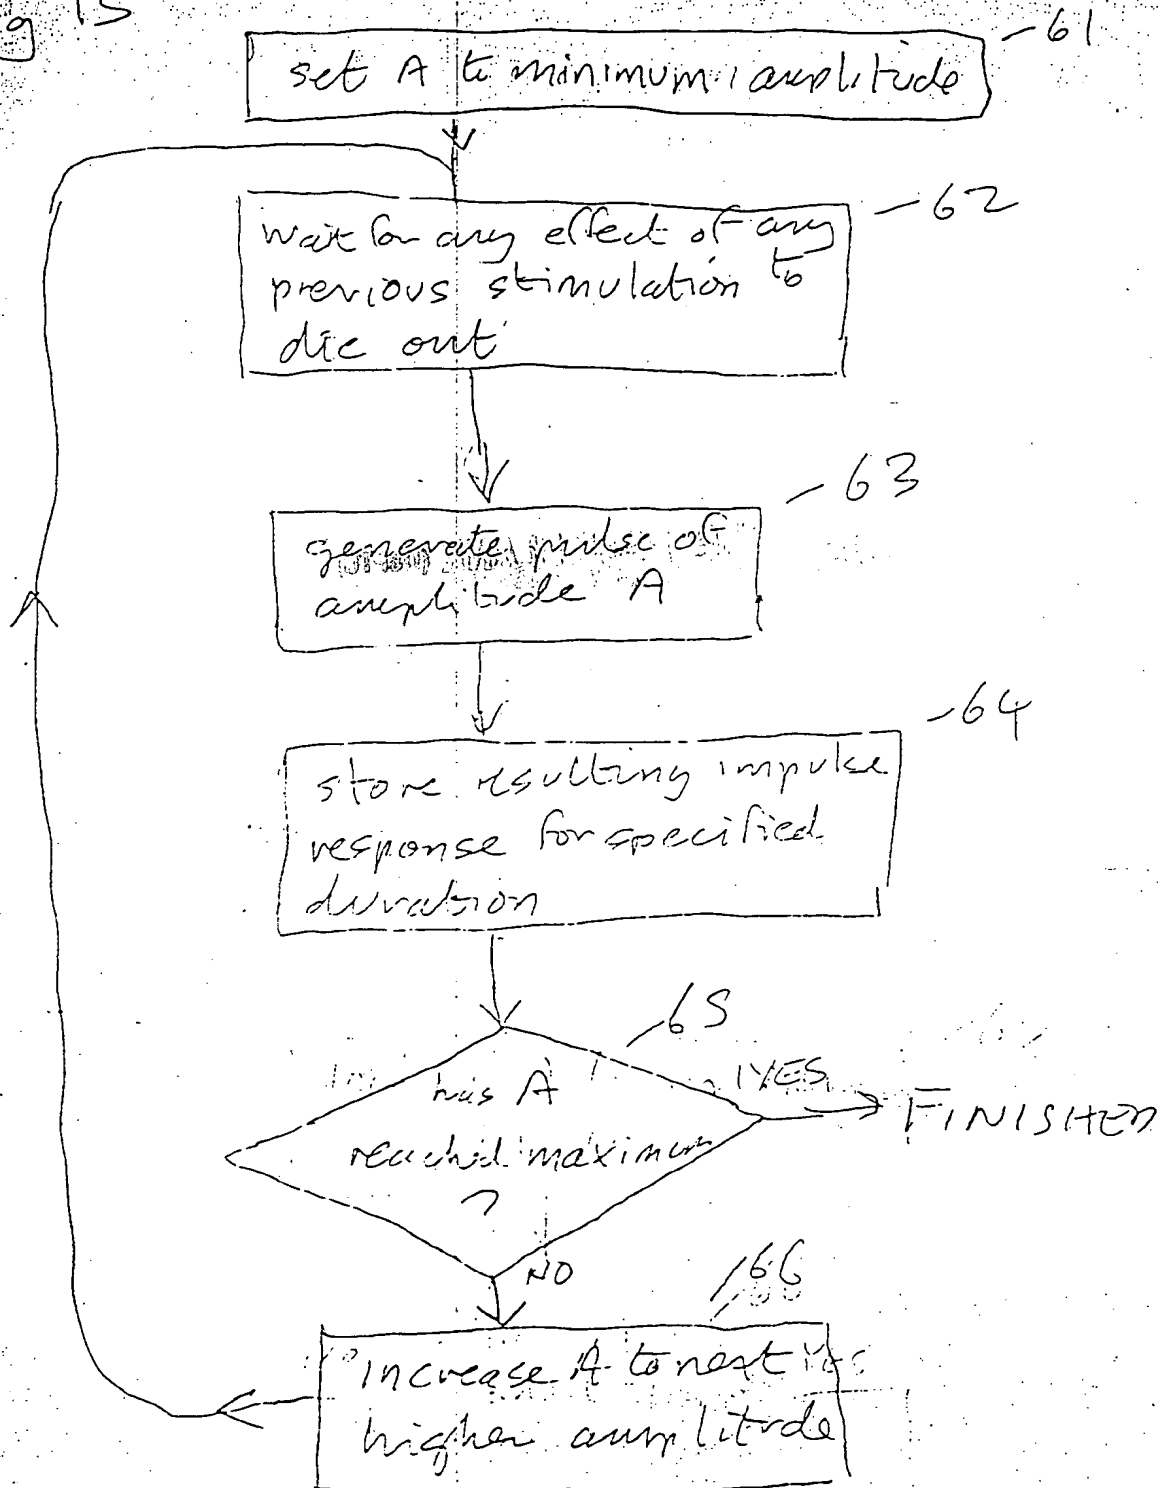 g 15
61
set A to minimum amplitude
62
wait for any effect of any
previous stimulation to
die out
63
generate pulse of
amplitude A
64
store resulting impulse
response for specified
duration
65
has A
reached maximum
?
YES
FINISHED
NO
66
increase A to next
higher amplitude